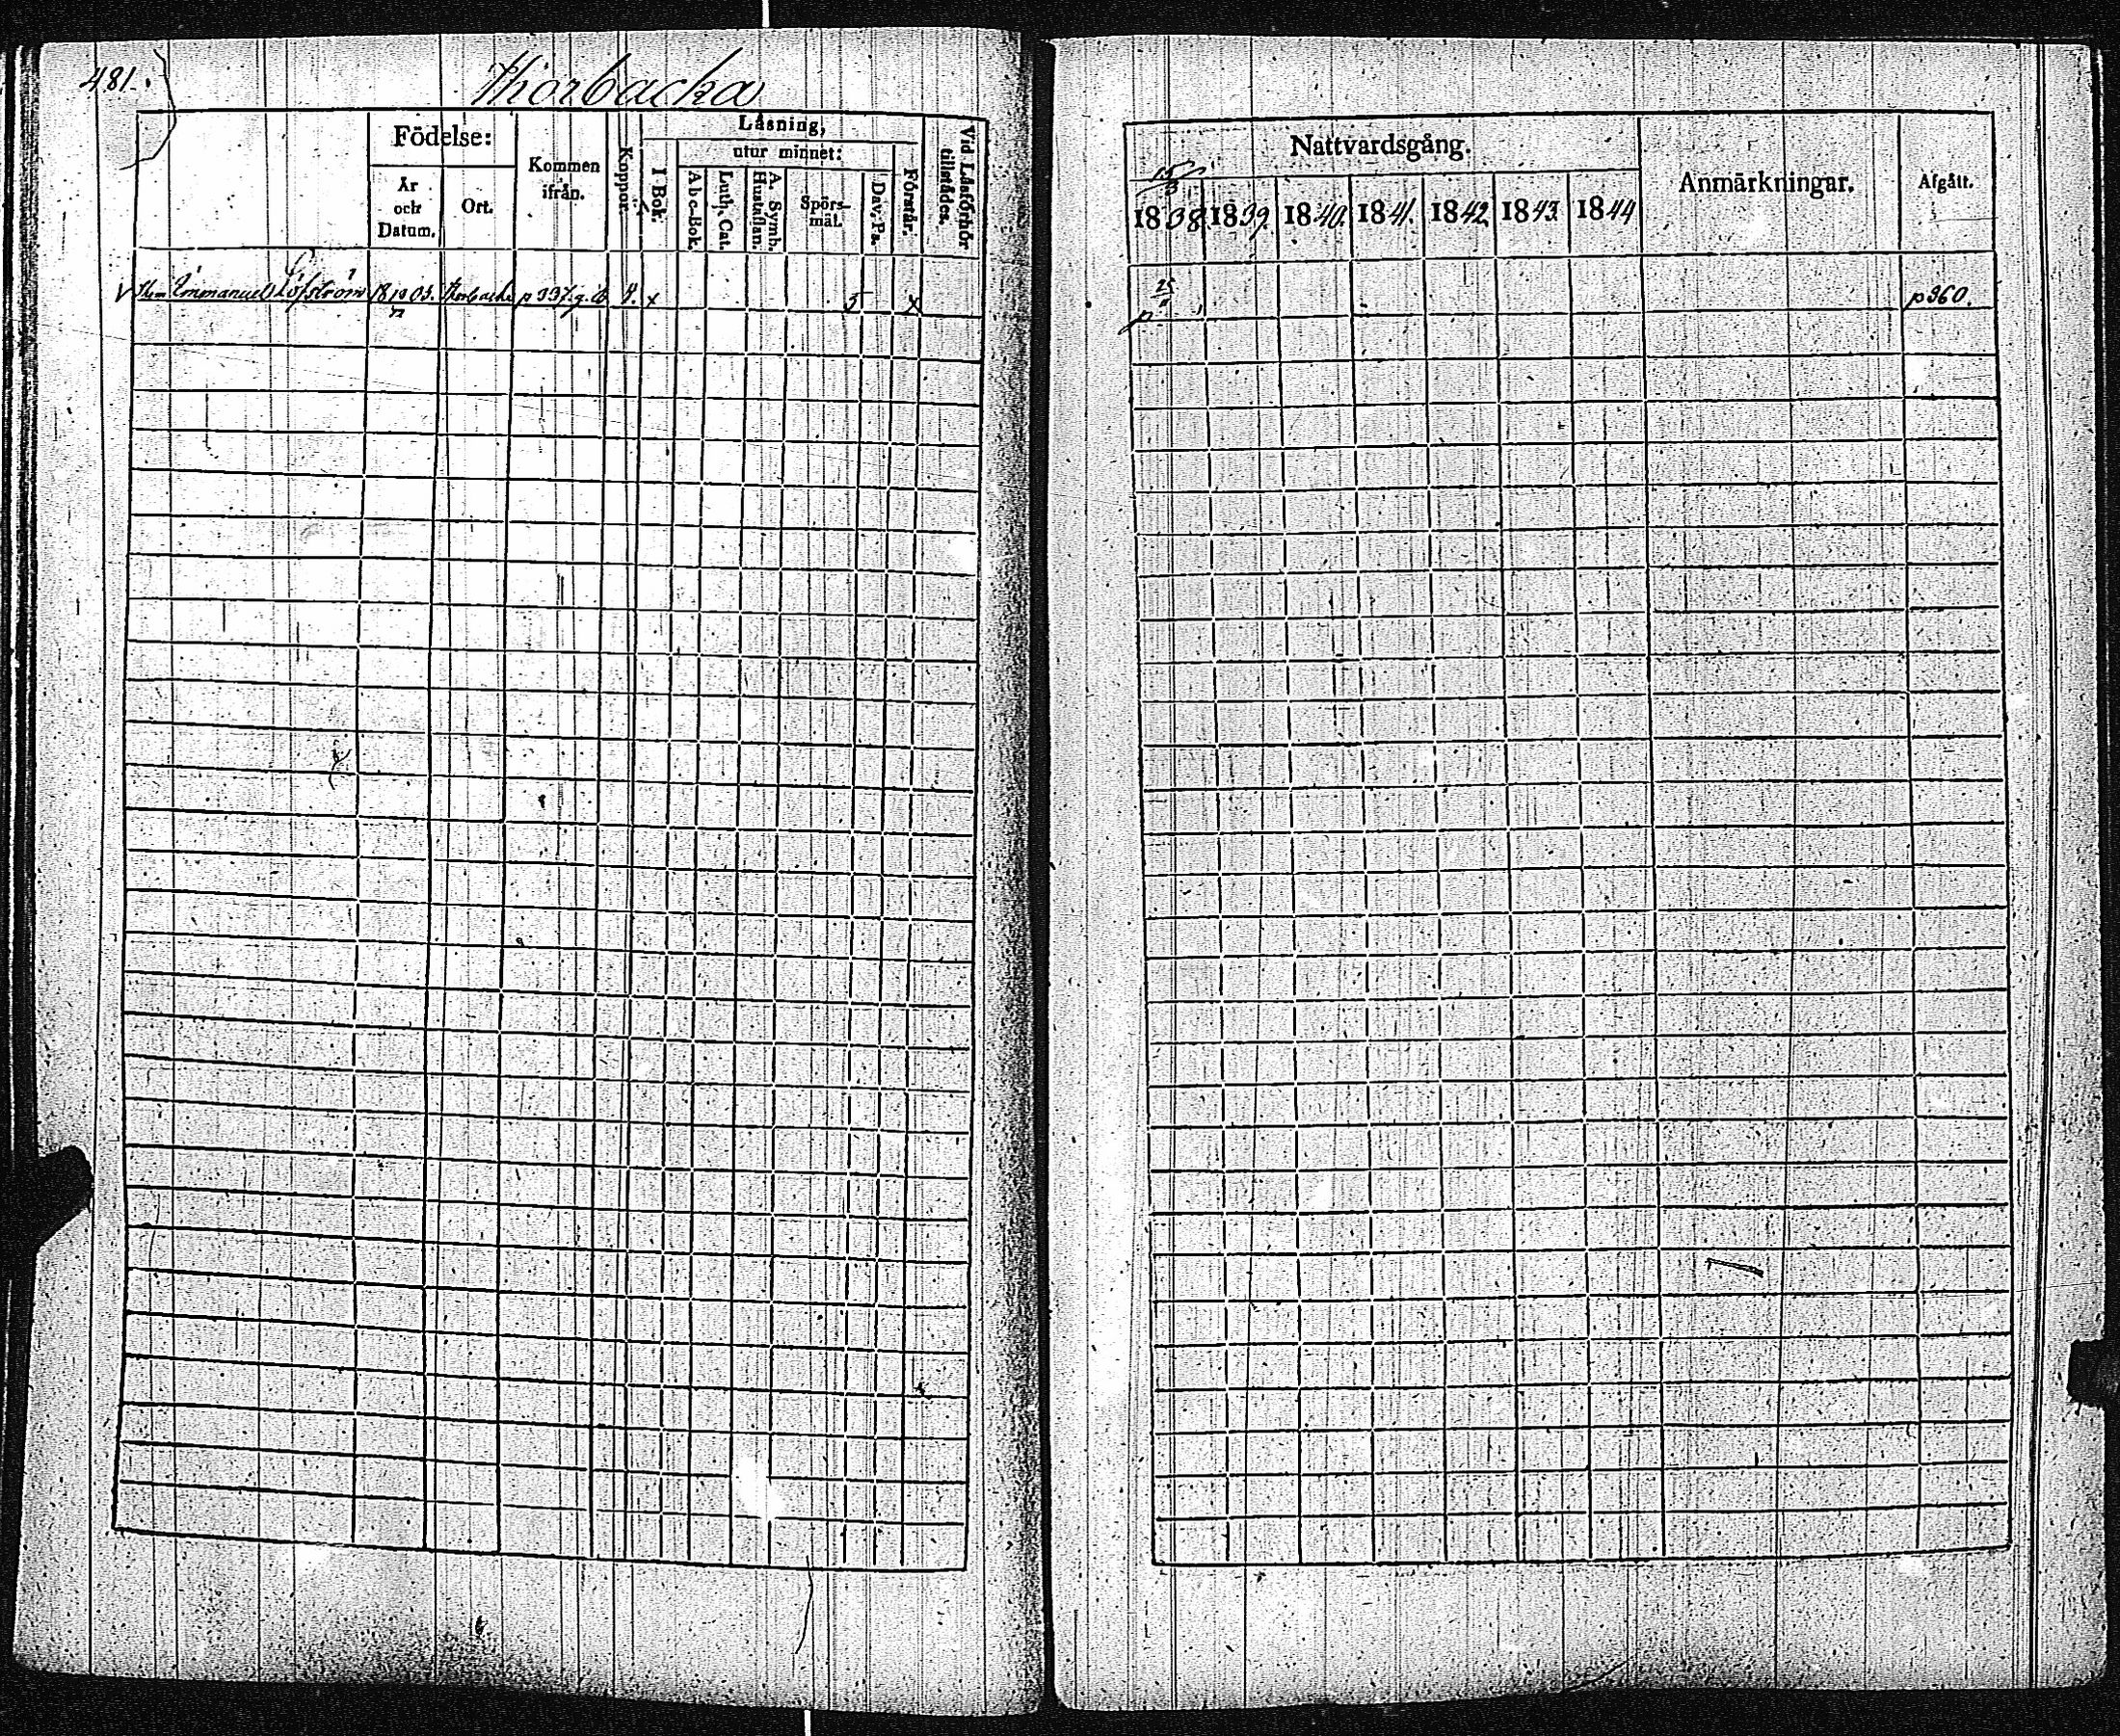 481.
Thorbacka
Födelse:
År och Datum.
Ort.
Kommen ifrån.
Koppor.
Läsning,
I Bok.
utur minnet:
Abc-Bok.
Luth. Cat.
A. Symb. Hustaflan.
Spörs-mål.
Dav. Ps.
Förstår.
Vid Läsförhör tillstädes.
Emmanuel Löfström Thorbacka p 337. g. b. 4. x 5 x
Nattvardsgång.
1838 1839. 1840. 1841. 1842 1843 1844
Anmärkningar.
Afgått.
25/11 p360.